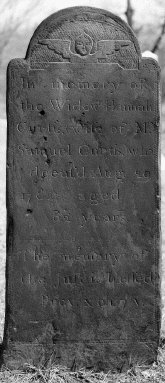 In memory of
the Widow Hannah
Curtis, wife of Mr
Samuel Curtis, who
died Aug
aged
years
The memory of
the Just is bleſsed
Prov